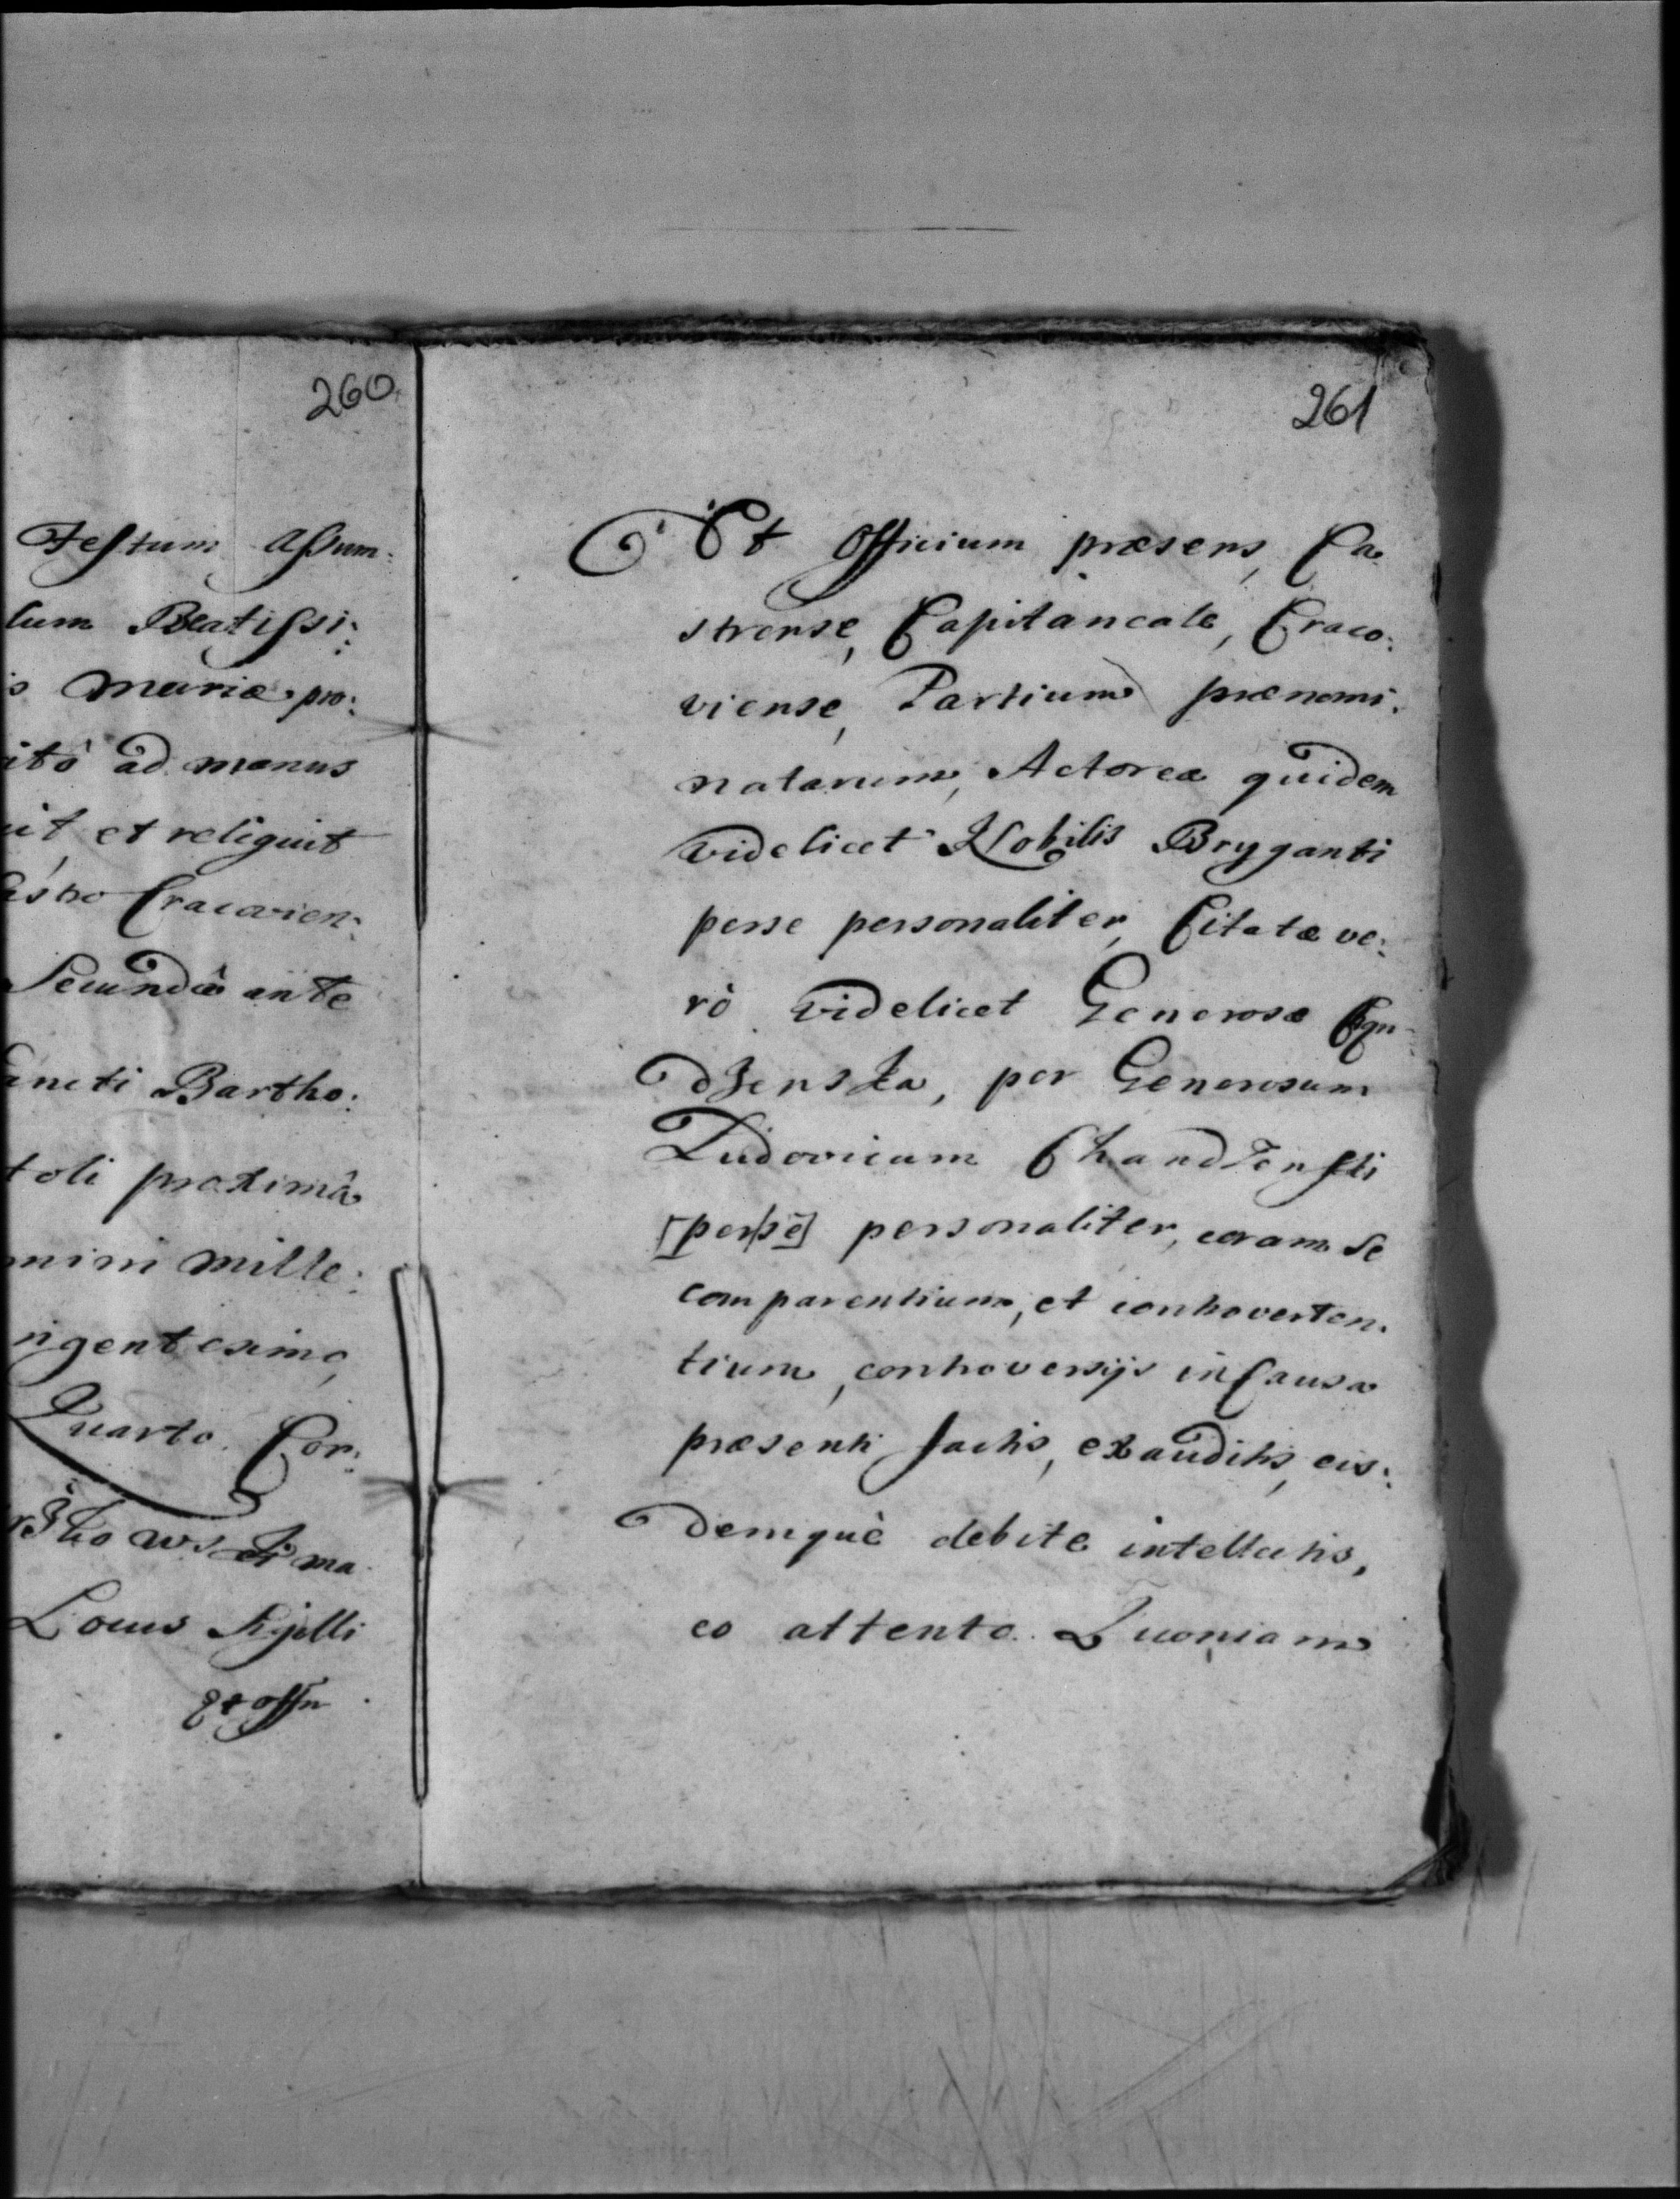 260
Festum Assum:
lum Beatissi:
s Mariæ pro:
itô ad manus
uit et reliquit
Castro Cracovien:
Secundâ ante
Sancti Bartho:
toli proximâ
mini Mille:
ngentesimo
Quarto. Cor:
Locus Sigilli
261
Et Officium præsens, Ca:
strense, Capitaneale, Craco:
viense, Partium prænomi:
natarum, Actoreæ quidem
videlicet Nobilis Bryganti
perse personaliter, Citatæ ve:
rò videlicet Generosæ
dzenska, per Generosum
Ludovicum Chandzenski
[perse] personaliter, coram se
comparentium, et controverten:
tium, controversijs in Causa
præsenti factis, exauditis, eis:
demquè debite intellectis,
eo attento. Quoniam